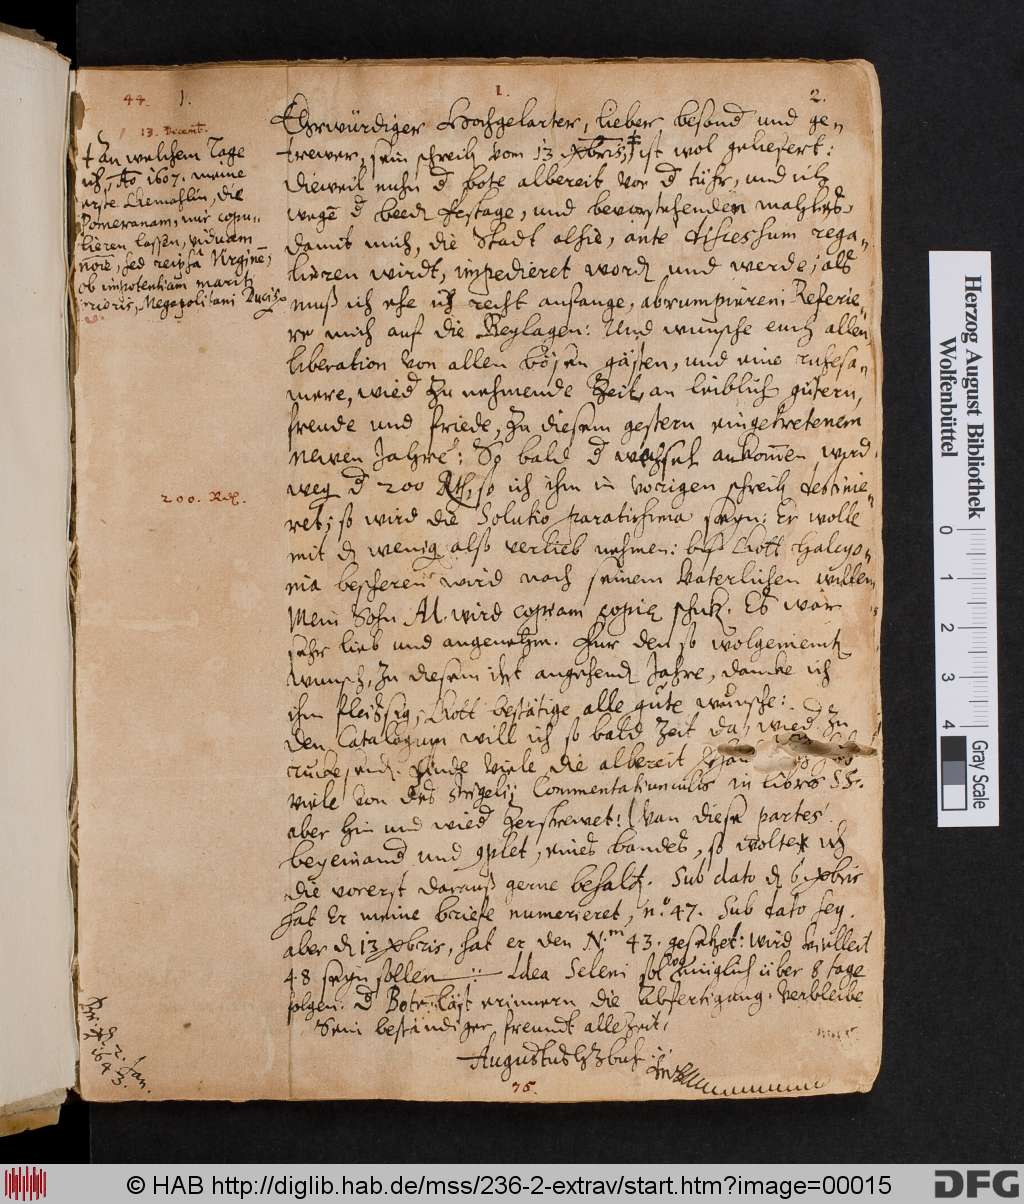 44. 1. 1. 2.
13. Decemb.
† an welchem Tage
ich, Ao 1607. meine
erste Gemahlin, die
Pomeranam, mir copu-
lieren lassen, viduam
nõie, sed reipsa Virgine,
ob impotentiam mariti
prioris, Megapolitani Ducis
Ehrwürdiger Hochgelarter, lieber besond und ge-
trewer, sein schreib vom 13 Xbris,† ist wol geliefert:
Dieweil nuhn d bote albereit vor d tühr, und ich
wegē d beed festage, und bevorstehenden
damit mich, die Stadt alhie, ante discessum rega-
lieren wirdt, impedieret word und werde; als
muß ich ehe ich recht anfange, abrumpieren: Referie-
re mich auf die Beylagen: Und wünsche euch allen
liberation von allen bösen gästen, und eine ruhesa-
mere, wied zu nehmende Zeit, an leiblich gütern,
freude und friede, zu diesem gestern eingetretenem
newen Jahre: So bald d wechsel ankomen wird,
weg d 200 Rth, so ich ihm in vorigen schreib destinie-
ret; so wird die Solutio paratissima seyn: Er wolle
200. Rth.
mit d wenig also verlieb nehmen: biß Gott Halcyo-
nia bescheren wird nach seinem Vaterlichen willen
Mein Sohn A. wird copiam copiæ schick. Es war
sehr lieb und angenehm. Für den so wolgemeint
wunsch, zu diesem itzt angehend Jahre, dancke ich
ihm fleissig; Gott bestätige alle gute wünsche:
den Catalogum will ich so bald Zeit da, wied zu
rucksend. Finde viele die albereit
viele von des Strigelij Commentatiunculis in libros SS.
aber hin und wied zerstrewet: Wan diese partes
beyeinand und complet, eines bandes, so wolte ich
die vorerst darauß gerne behalt. Sub dato d 6 Xbris
hat Er meine briefe numerieret, no. 47. Sub dato hey.
aber d 13 Xbris, hat er den N.m 43. gesetzet: wird villeit
48 seyn sollen. Idea Seleni sol müglich über 8 tage
folgen. d Bote läst erinnern die abfertigung. Verbleibe
Sein beständiger freundt alle Zeit,
Augustus HZBuL
2. Jan.
1643.
75.
Herzog August Bibliothek
Wolfenbüttel
0 1 2 3 4
Gray Scale
© HAB http://diglib.hab.de/mss/236-2-extrav/start.htm?image=00015
DFG